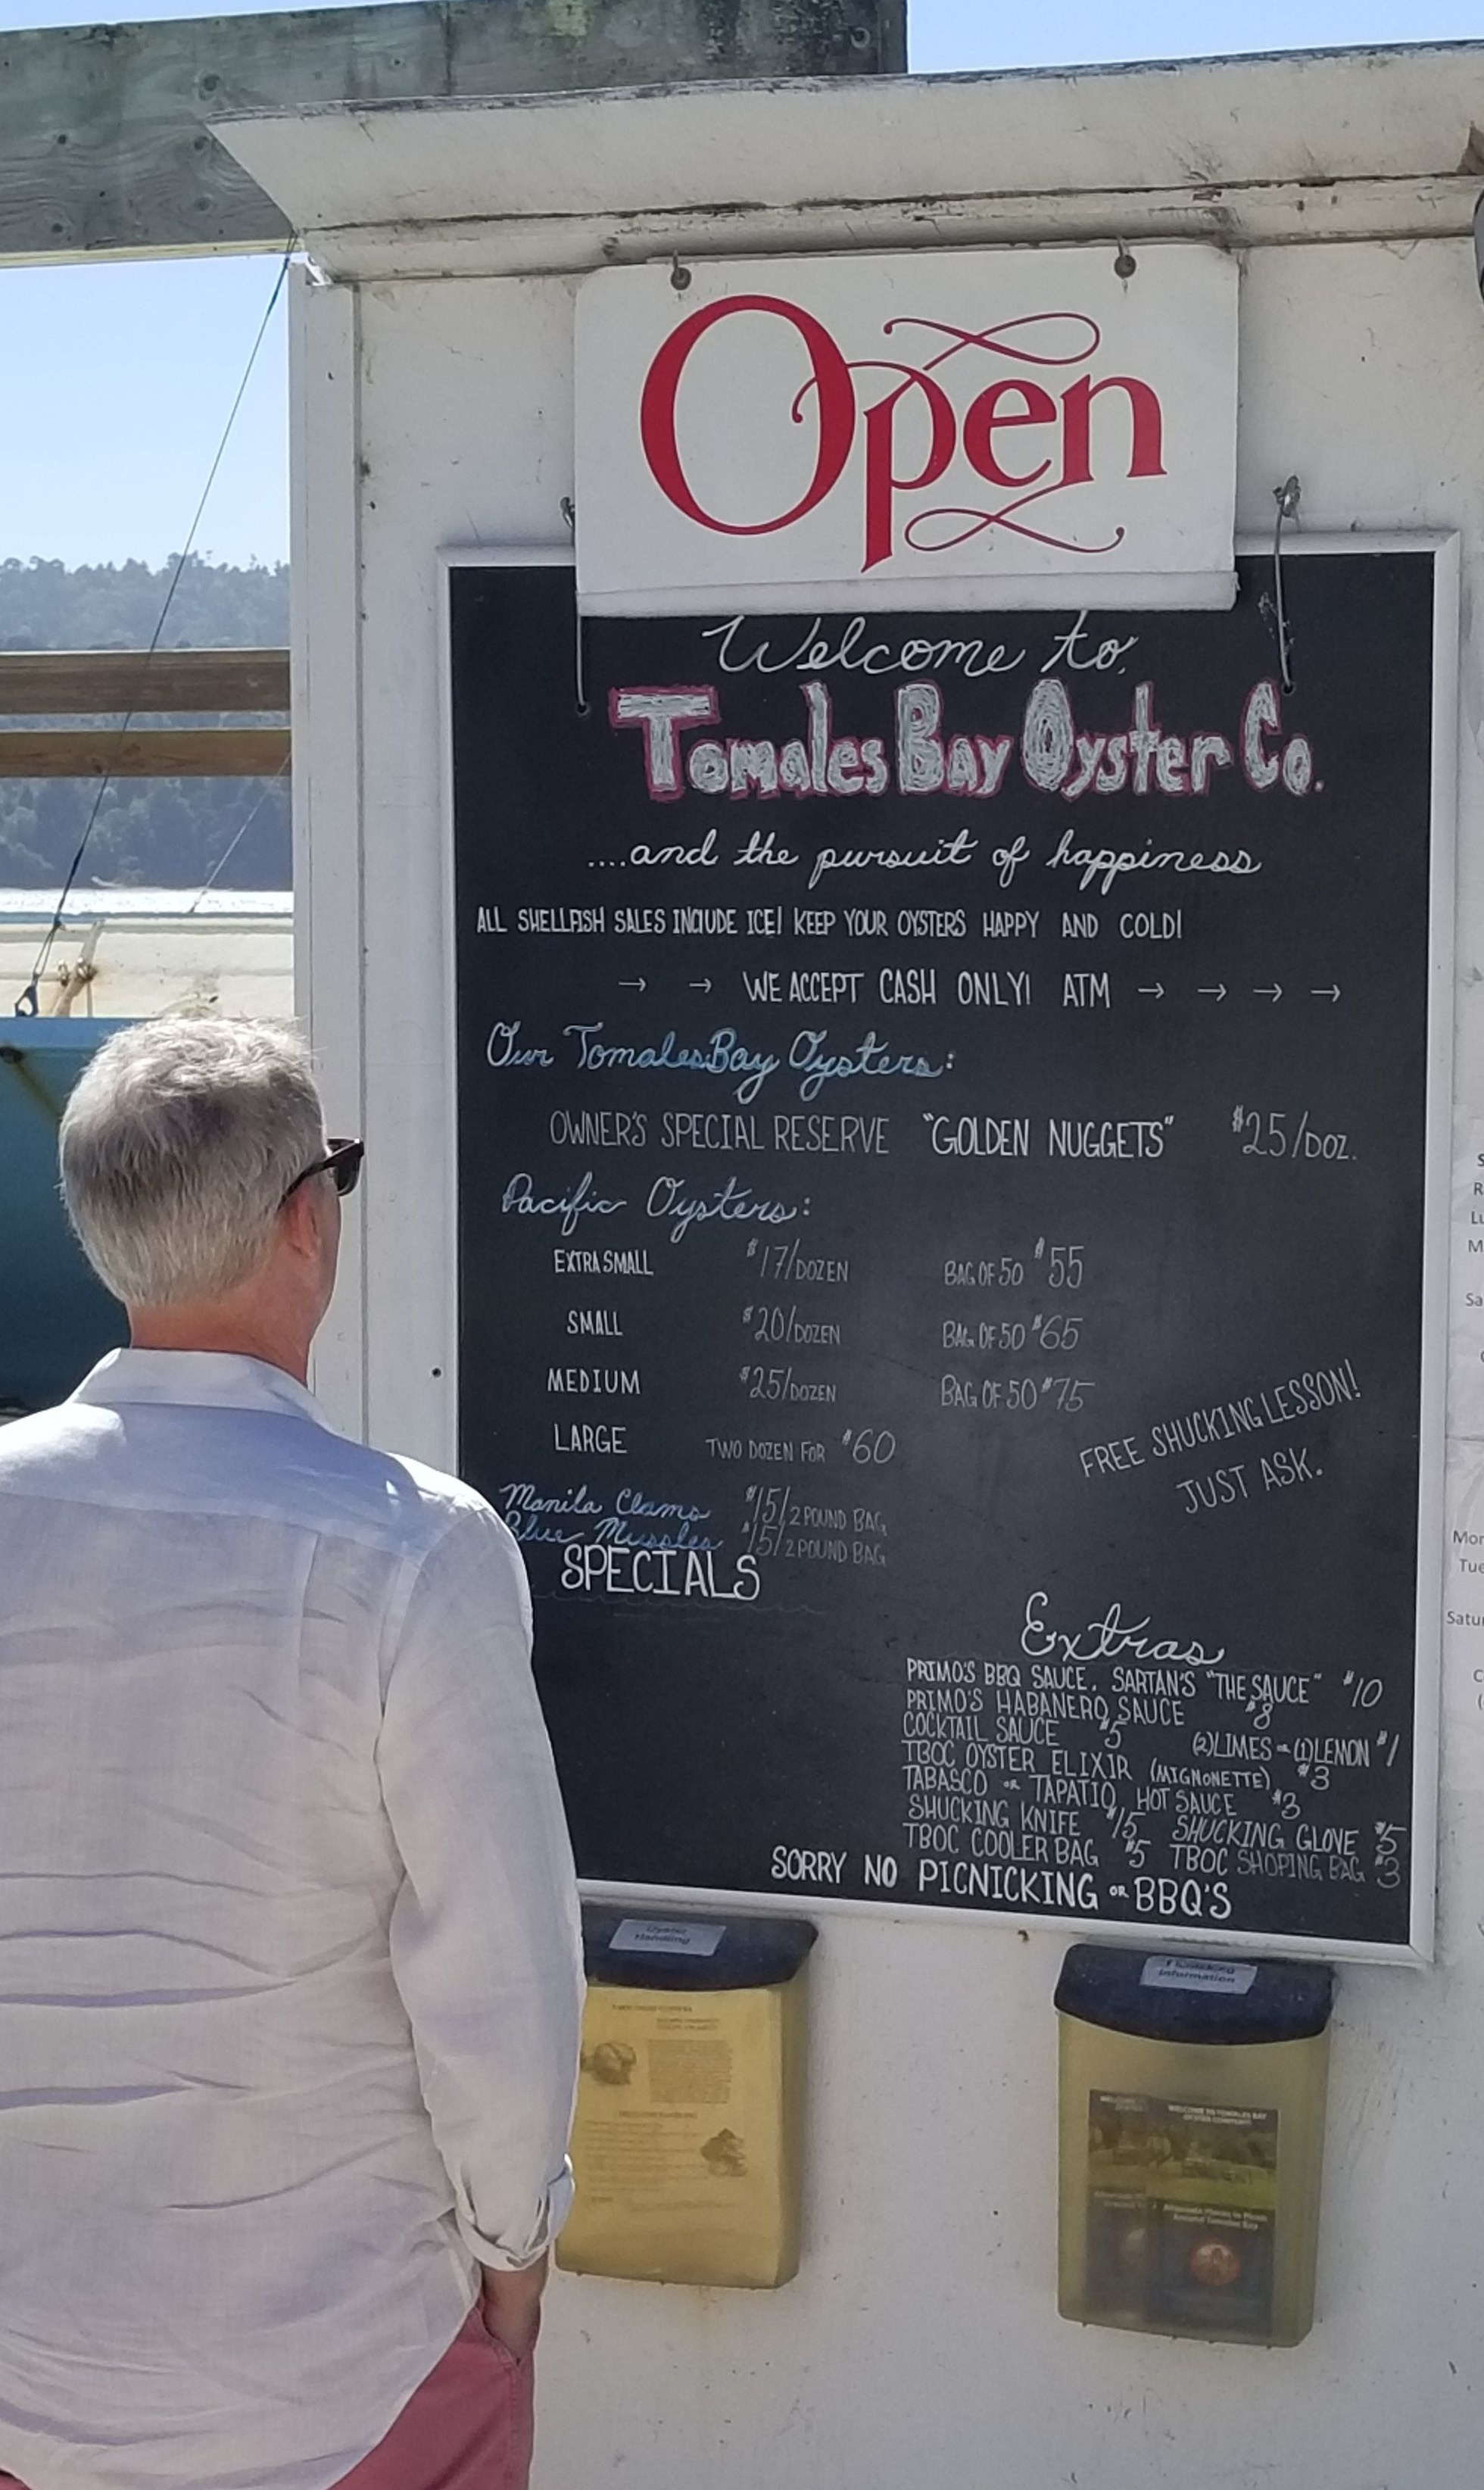 Open
Welcome to
Tomales Bay Oyster Co.
....and the pursuit of happiness
ALL SHELLFISH SALES INCLUDE ICE! KEEP YOUR OYSTERS HAPPY AND COLD!
→ → WE ACCEPT CASH ONLY! ATM → → → →
Our Tomales Bay Oysters:
OWNER'S SPECIAL RESERVE "GOLDEN NUGGETS" $25/DOZ.
Pacific Oysters:
EXTRA SMALL $17/DOZEN BAG OF 50 $55
SMALL $20/DOZEN BAG OF 50 $65
MEDIUM $25/DOZEN BAG OF 50 $75
LARGE TWO DOZEN FOR $60
FREE SHUCKING LESSON!
JUST ASK.
Manila Clams $15/2 POUND BAG
Blue Mussles $15/2 POUND BAG
SPECIALS
Extras
PRIMO'S BBQ SAUCE. SARTAN'S "THE SAUCE" $10
PRIMO'S HABANERO SAUCE $8
COCKTAIL SAUCE $5 (2)LIMES or (1)LEMON $1
TBOC OYSTER ELIXIR (MIGNONETTE) $3
TABASCO or TAPATIO HOT SAUCE $3
SHUCKING KNIFE $15 SHUCKING GLOVE $5
TBOC COOLER BAG $5 TBOC SHOPING BAG $3
SORRY NO PICNICKING or BBQ'S
Oyster
Handling
information
WELCOME TO TOMALES BAY
OYSTER COMPANY
Alternate Places to Picnic
Around Tomales Bay